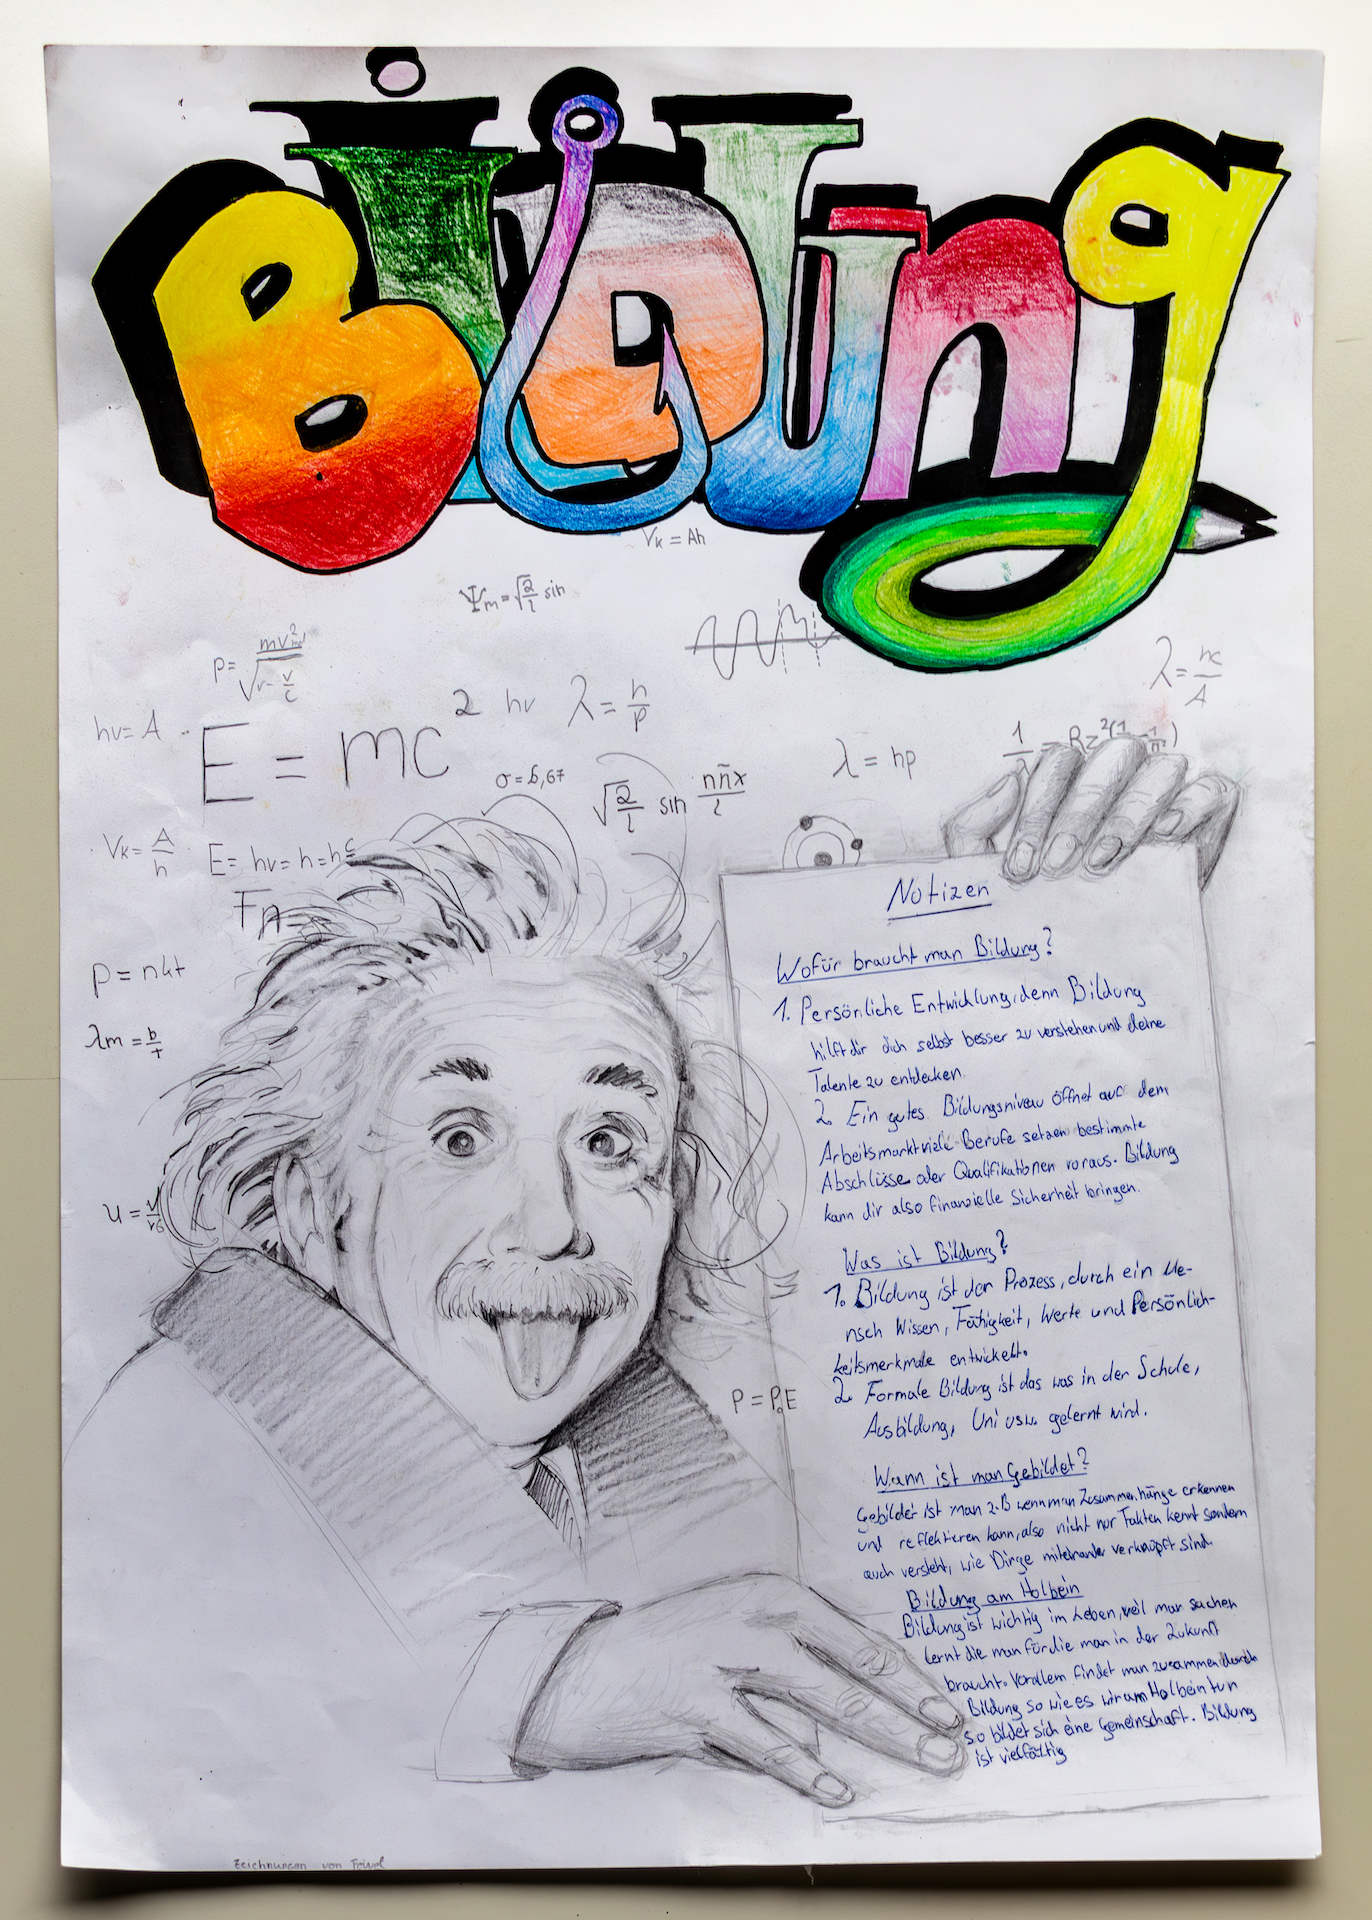 Bildung
Vk = Ah
Ψm = √2/l sin
p = mv²/√v-v/c
λ = hc/A
hv = A
E = mc²
hv
λ = h/p
λ = hp
1/λ = Rz²(1
σ = 5,67
√2/l sin nπx/l
Vk = A/h
E = hv = h = h c
Fn =
p = nkt
λm = b/T
u =
P = P₀E
Notizen
Wofür braucht man Bildung?
1. Persönliche Entwicklung, denn Bildung
hilft dir dich selbst besser zu verstehen und deine
Talente zu entdecken.
2. Ein gutes Bildungsniveau öffnet auf dem
Arbeitsmarkt viele Berufe setzen bestimmte
Abschlüsse oder Qualifikationen voraus. Bildung
kann dir also finanzielle Sicherheit bringen.
Was ist Bildung?
1. Bildung ist der Prozess, durch ein Me-
nsch Wissen, Fähigkeit, Werte und Persönlich-
keitsmerkmale entwickelt.
2. Formale Bildung ist das was in der Schule,
Ausbildung, Uni usw. gelernt wird.
Wann ist man Gebildet?
Gebildet ist man z.B wenn man Zusammenhänge erkennen
und reflektieren kann, also nicht nur Fakten kennt sondern
auch versteht, wie Dinge miteinander verknüpft sind.
Bildung am Holbein
Bildung ist wichtig im Leben, weil man sachen
lernt die man für die man in der Zukunft
braucht. Vorallem findet man zusammen durch
Bildung so wie es wir am Holbein tun
so bildet sich eine Gemeinschaft. Bildung
ist vielfältig
Zeichnungen von